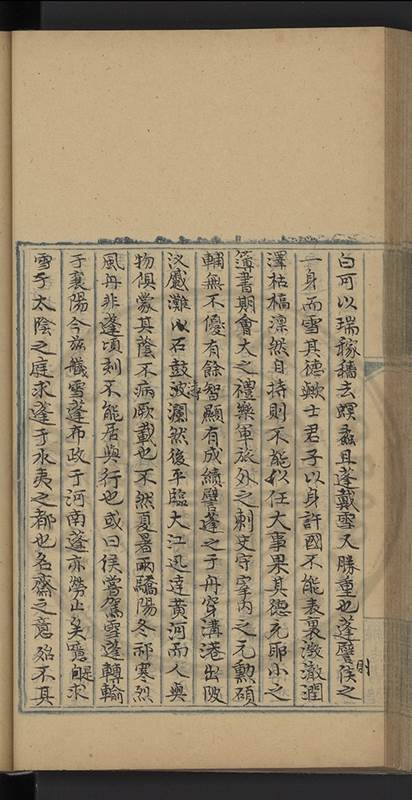 白可以瑞稼穡去螟螽且蓬戴雪又勝重也蓬譬侯之
一身而雪其德歟士君子以身許國不能表裏瀓澈潤則
澤枯槁凛然自持則不能以任大事果其德充耶小之
簿書期會大之禮樂軍旅外之刺史守宰內之元勳碩
輔無不優有餘智顯有成績譬蓬之于舟穿溝港出陂
汊戚灘以石鼓波濤瀾然後平臨大江迅達黃河而人與
物俱蒙其蔭不病厥載也不然夏暑雨驕陽冬祁寒烈
風舟非蓬頃刻不能居與行也或曰侯嘗駕雪蓬轉輸
于襄陽今茲艤雪蓬布政于河南蓬亦勞止矣寔 求
雪于太陰之庭求蓬于水夷之都也名齋之意殆不其